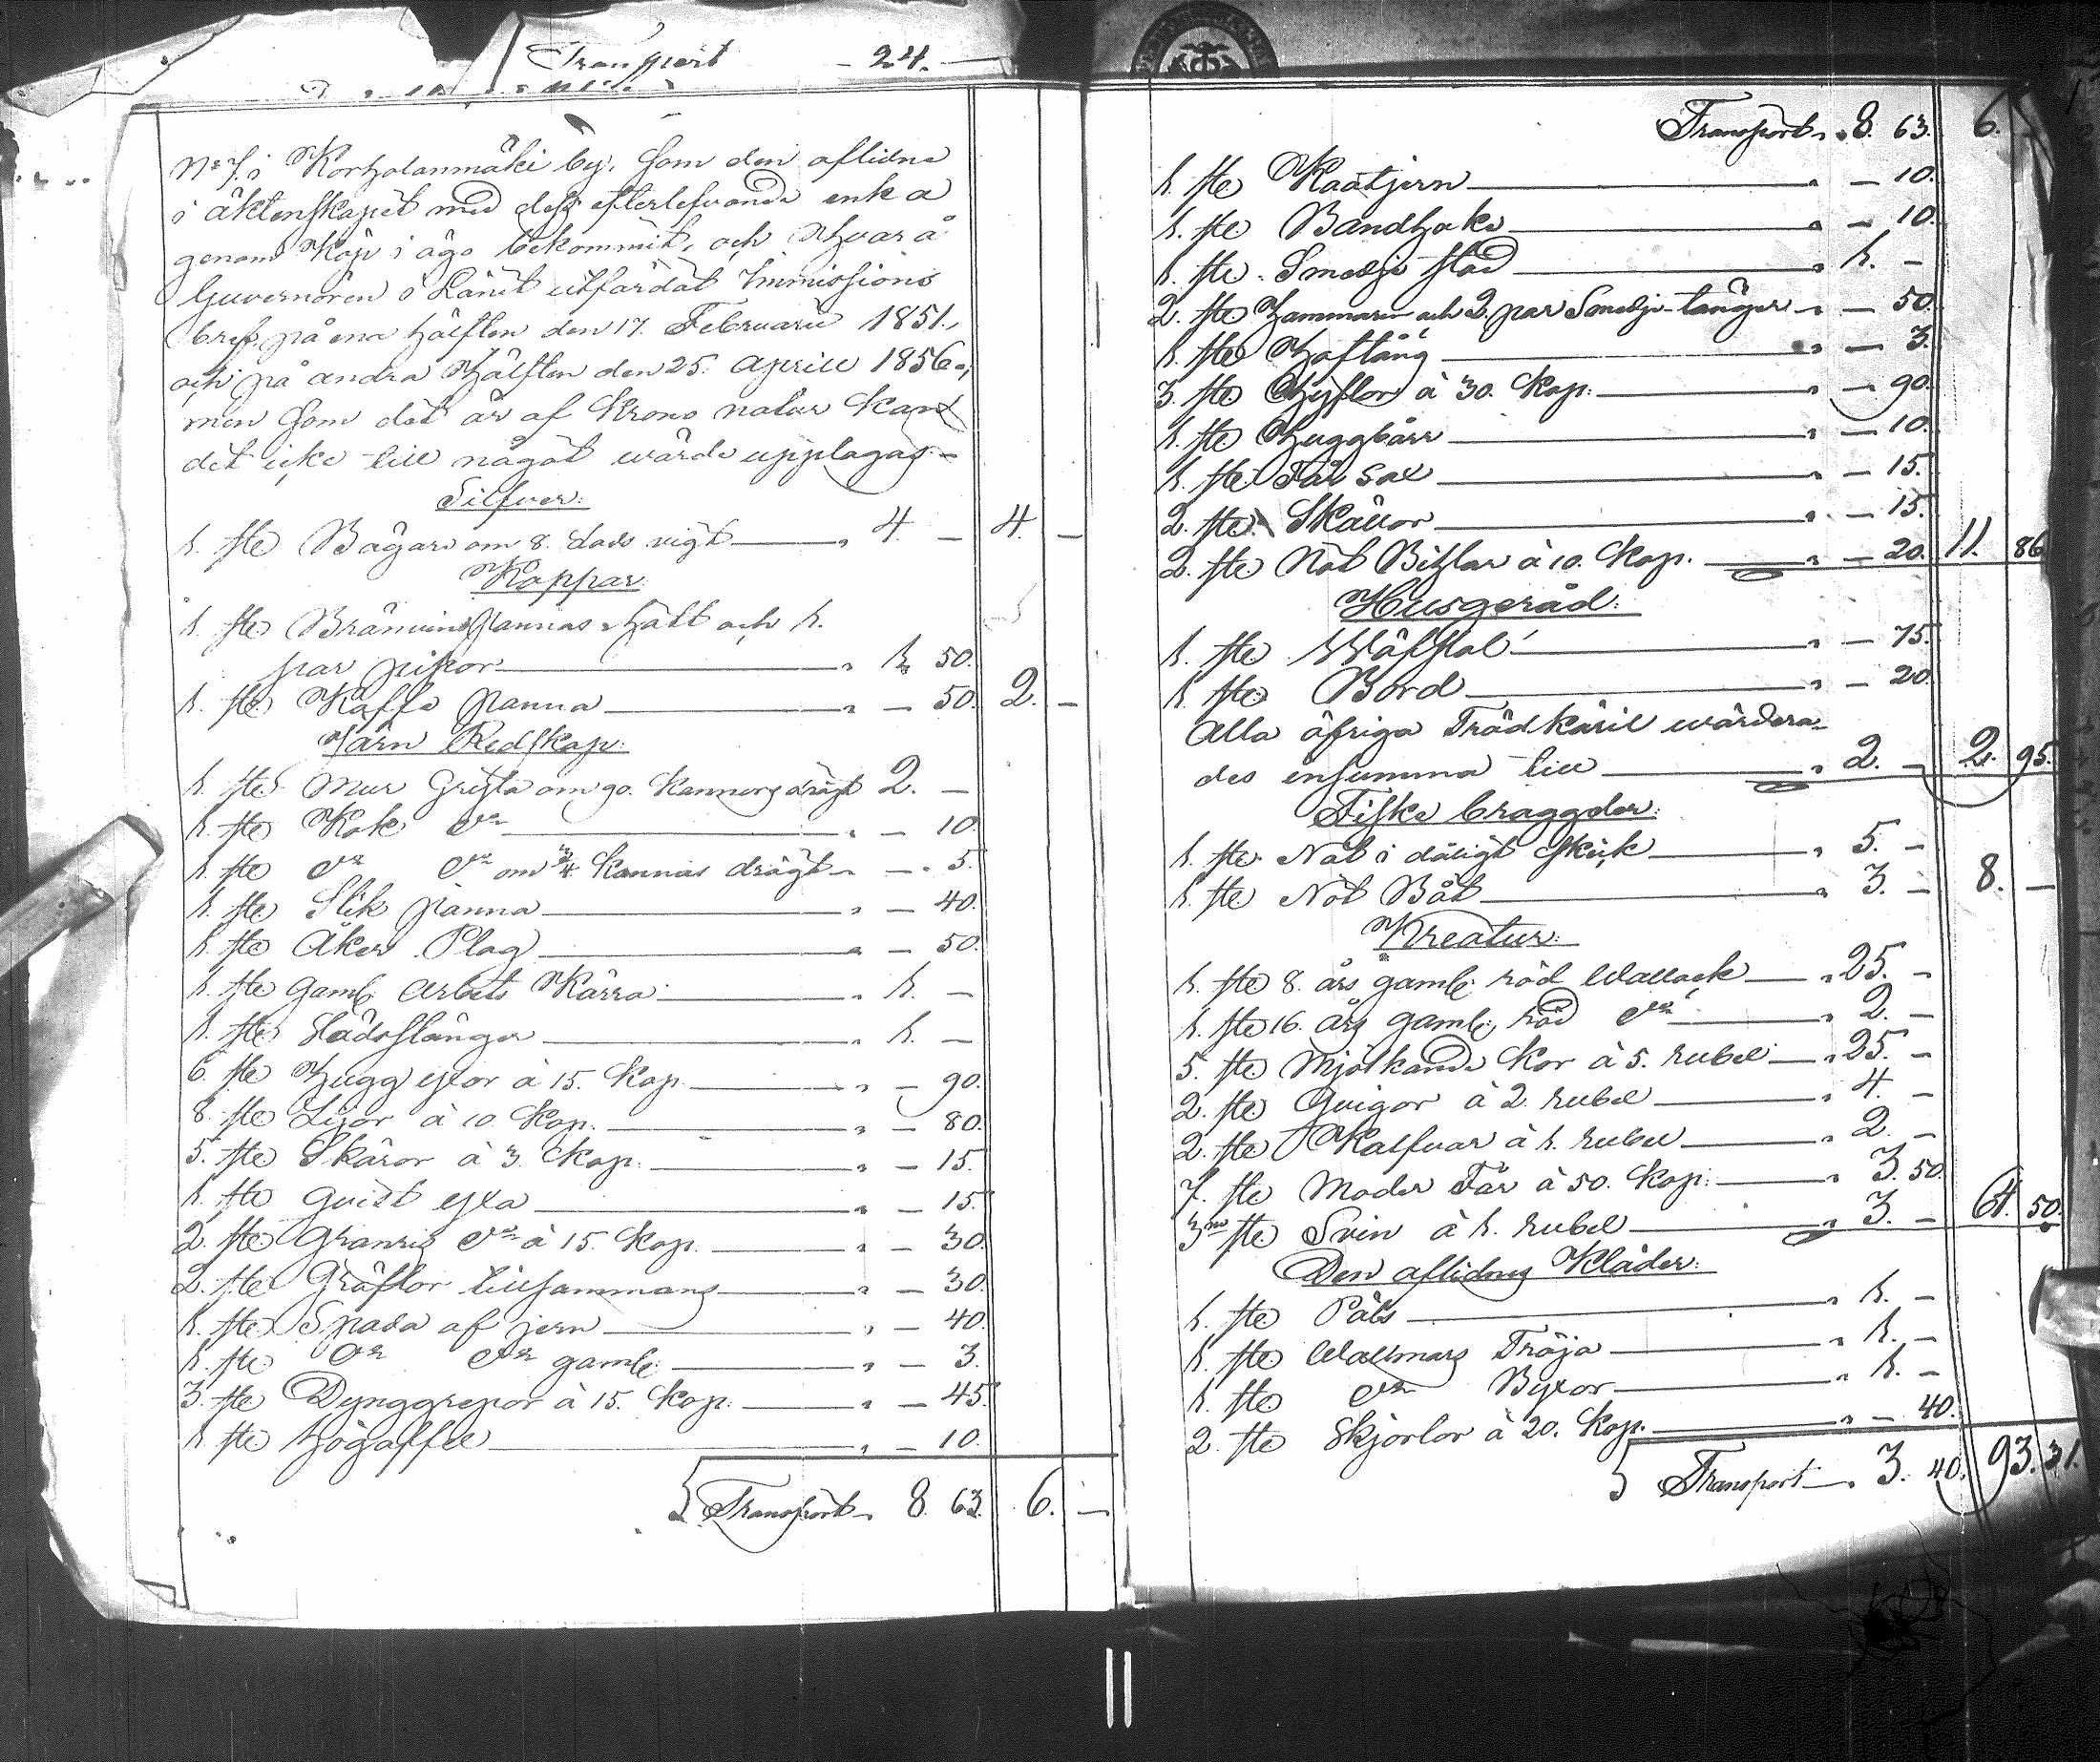 Transport - 24. -
No 7. i Korholanmäki by, som den aflidne
i äktenskapet med dess efterlefvande enka
genom Köp i ägo bekommit, och hvarå
Guvernören i Länet utfärdat Immissions
bref, på ena hälften den 17. Februarii 1851.,
och på andra Hälften den 25. Aprill 1856.,
men som det är af Krono natur kan
det icke till något wärde upptagas. -
Silfver:
1. ste Bägare om 8. lods vigt „ 4. - 4. -
Koppar:
1. ste Bränvins Pannas Hatt och 1.
par pipor „ 1. 50.
1. ste Kaffe panna „ - 50. 2. -
Järn Redskap:
1. ste Mur Gryta om 90. Kannors drägt 2. -
1. ste Kok do „ - 10.
1. ste do do om 3/4 Kannas drägt „ - 5.
1. ste Stek panna „ - 40.
1. ste Åker Plog „ - 50.
1. ste gaml. Arbets Kärra „ 1. -
1. ste Städsstänger „ 1. -
6. ste Hugg yxor à 15. Kop. „ - 90.
8. ste Lijor à 10 Kop. „ - 80.
5. ste Skäror à 3. Kop. „ - 15.
1. ste Qvist yxa „ - 15.
2. ste Granris do à 15. Kop. „ - 30.
2. ste Gräftor tillsammans „ - 30.
1. ste Spada af jern „ - 40.
1. ste do do gaml. „ - 3.
3. ste Dynggrepor à 15. Kop. „ - 45.
1. ste högaffel „ - 10.
Transport „ 8. 63. 6. -
Transport „ 8. 63. 6. -
1. ste „ - 10.
1. ste Bandhake „ - 10.
1. ste Smedje städ „ 1. -
2. ste Hammaren och 2. par Smedje-tänger „ - 50.
1. ste Hoftång „ - 3.
3. ste Hyflor à 30. Kop. „ - 90.
1. ste Huggbårr „ - 10.
1. ste Får sax „ - 15.
2. ste Skållor „ - 15.
2. ste Nöt Bitzlar à 10. Kop. „ - 20. 11. 86.
Husgeråd:
1. ste Wäfstol „ - 75.
1. ste Bord „ - 20.
Alla öfriga Trädkäril wärdera-
des ensumma till „ 2. - 2. 95.
Fiske braggder:
1. ste Not i dåligt skick „ 5. -
1. ste Not Båt „ 3. - 8. -
Kreatur:
1. ste 8. års gaml. röd Wallack „ 25. -
1. ste 16. års gaml. röd do „ 2. -
5. ste Mjölkande Kor à 5. rubel „ 25. -
2. ste Qvigor à 2. rubel „ 4. -
2. ste Kalfvar à 1. rubel „ 2. -
7. ste Moder Får à 50. Kop. „ 3. 50.
3ne ste Svin à 1. rubel „ 3. - 64. 50.
Den aflidnes Kläder:
1. ste Päls „ 1. -
1. ste Wallmars Tröja „ 1. -
1. ste do Byxor „ 1. -
2. ste Skjortor à 20. Kop. „ - 40.
Transport „ 3. 40. 93. 31.